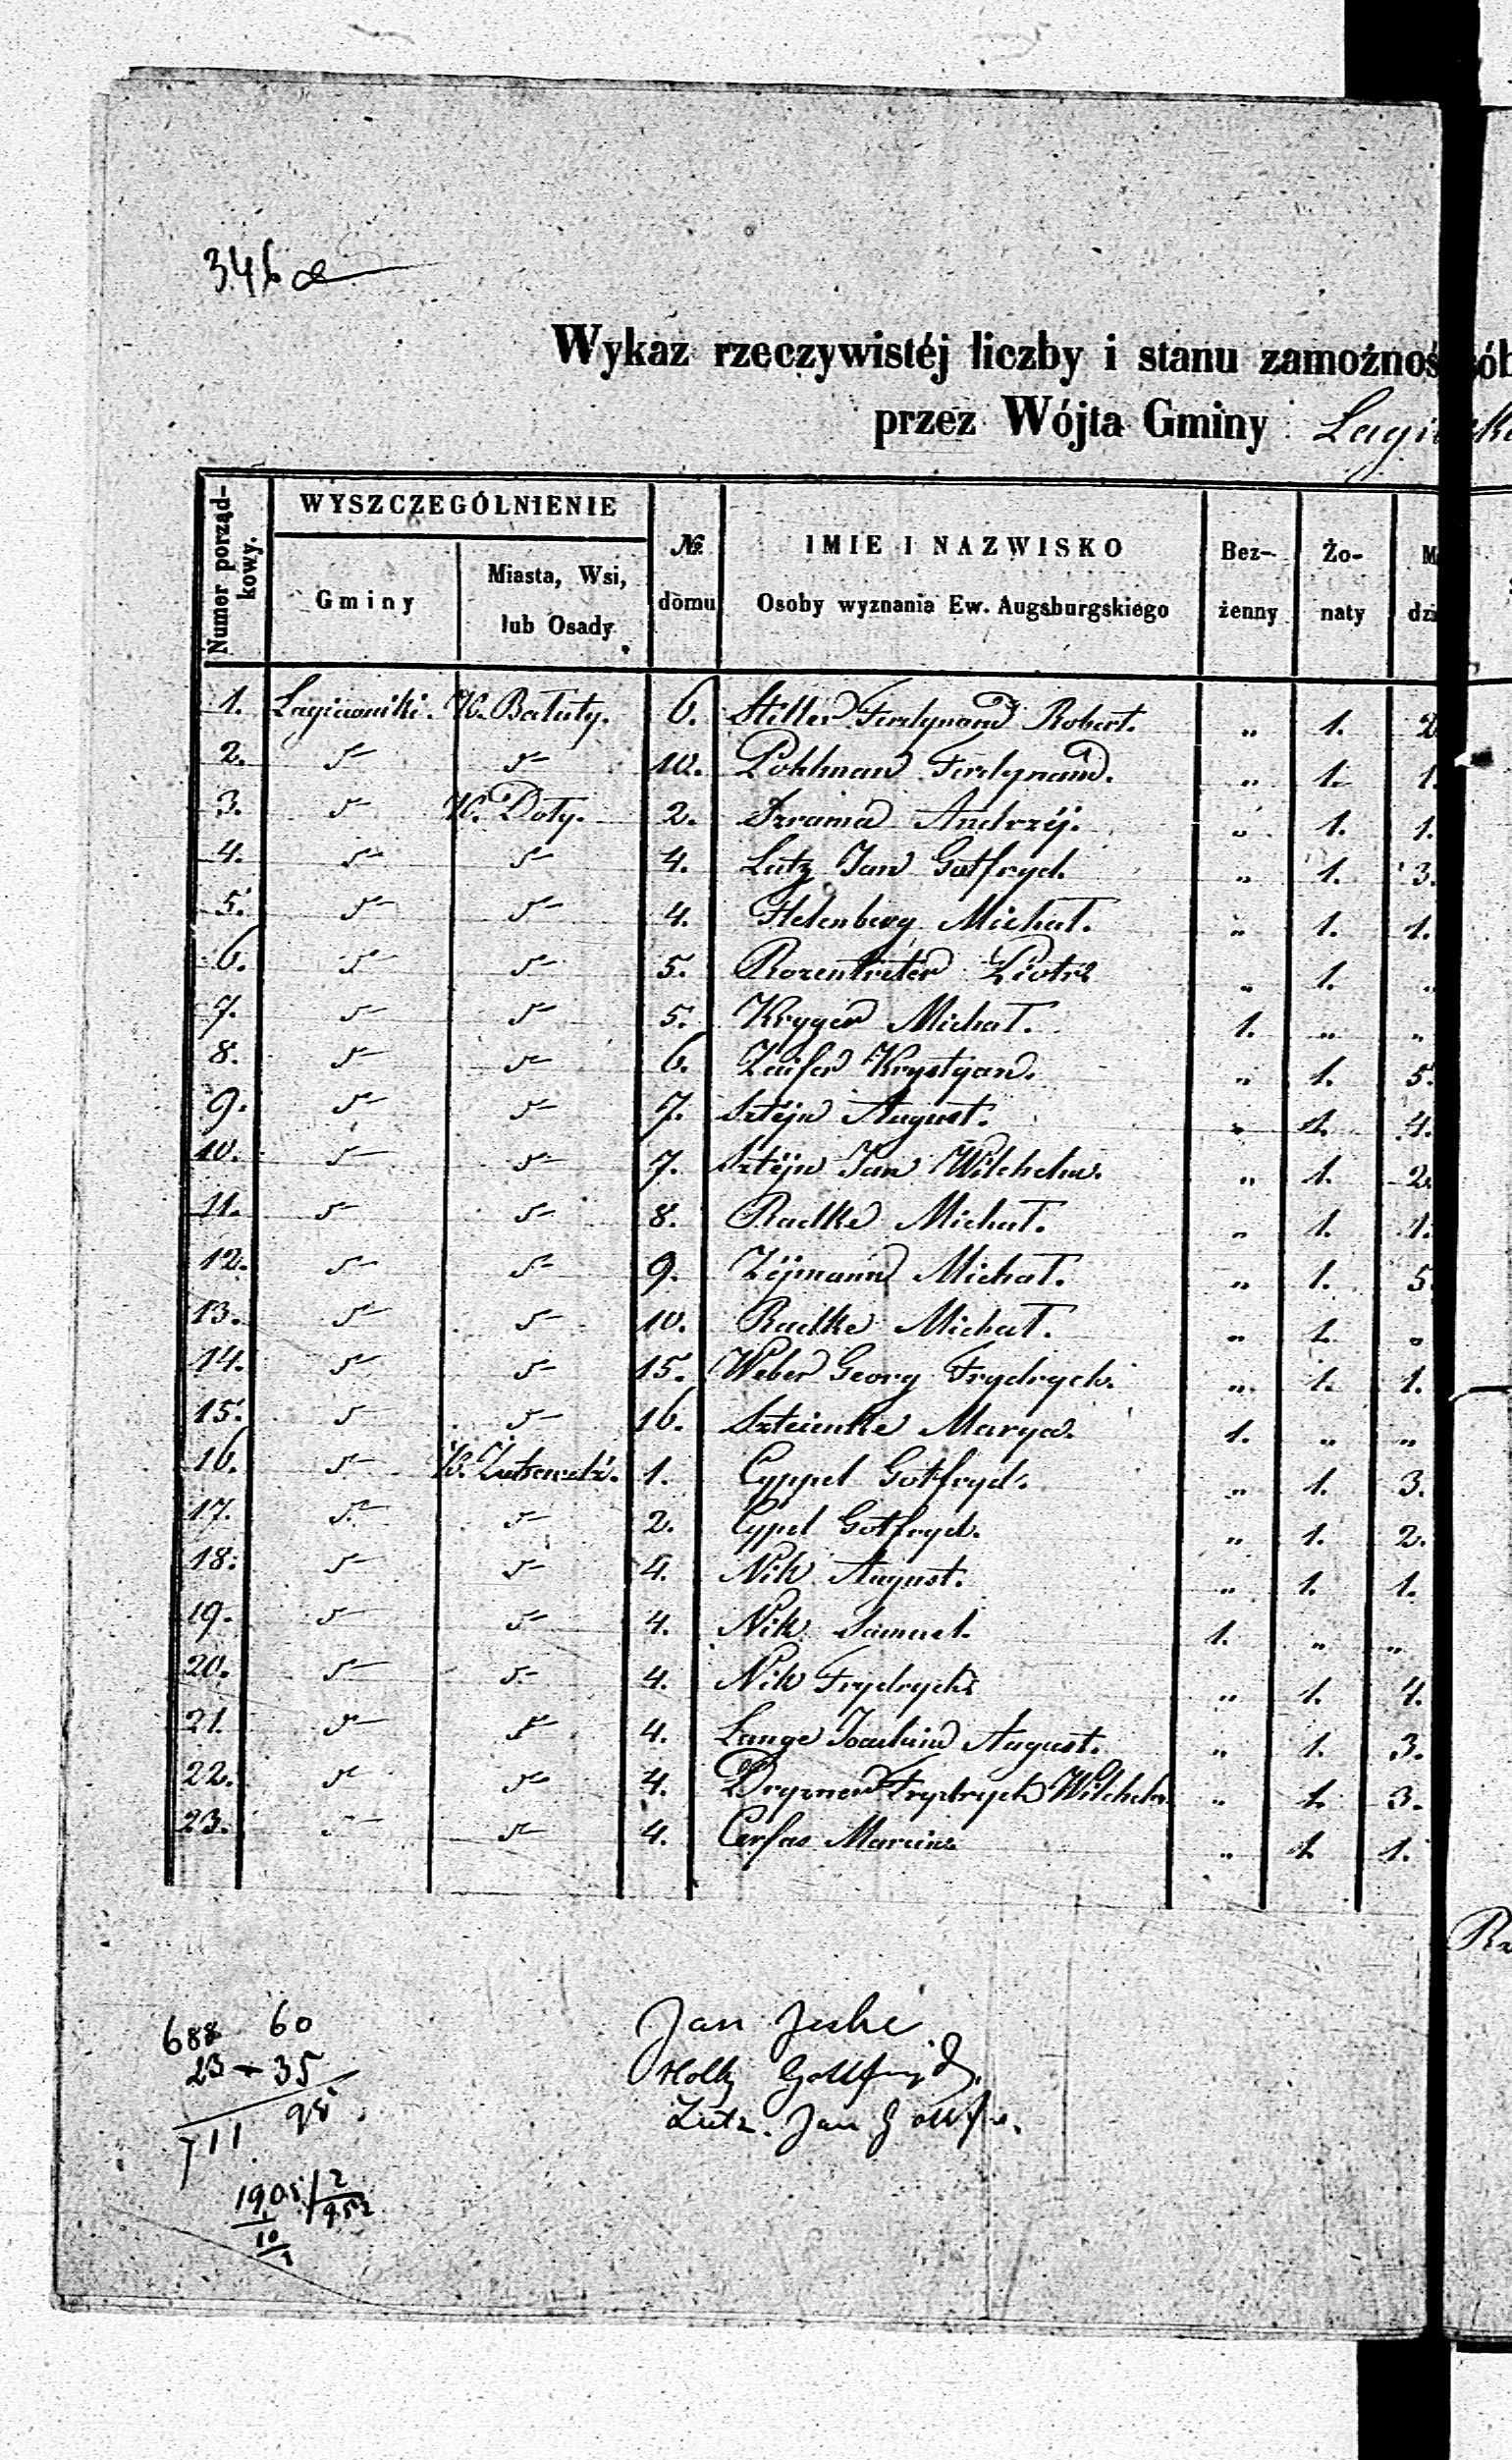 346
Wykaz rzeczywistéj liczby i stanu zamożnoś
przez Wójta Gminy
Numer porządkowy.
WYSZCZEGÓLNIENIE
Gminy
Miasta, Wsi,
lub Osady
№
domu
IMIE I NAZWISKO
Osoby wyznania Ew. Augsburgskiego
Bez-
żenny
Żo-
naty
1. Łagiewniki. W. Bałuty. 6. Stiller Ferdynand Robert. „ 1. 2
2. 10. Pohlman Ferdynand. „ 1. 1.
3. W. Doły. 2. Szrama Andrzéj. „ 1. 1.
4. 4. Lutz Jan Gotfryd. „ 1. 3.
5. 4. Helenberg Michał. „ 1. 1.
6. 5. Rozentreter Piotr „ 1. „
7. 5. Kryger Michał. 1. „ „
8. 6. Zaifer Krystyan. „ 1. 5.
9. 7. Sztéjn August. „ 1. 4.
10. 7. Sztéjn Jan Wilchelm. „ 1. 2.
11. 8. Radke Michał. „ 1. 1.
12. 9. Zéjmann Michał. „ 1. 5
13. 10. Radke Michał. „ 1. „
14. 15. Weber Georg Frydrych. „ 1. 1.
15. 16. Marya. 1. „ „
16. 1. Cyppel Gotfryd. „ 1. 3.
17. 2. Cypel Gotfryd. „ 1. 2.
18. 4. Nik August. „ 1. 1.
19. 4. Nik Samuel. 1. „ „
20. 4. Nik Frydrych „ 1. 4.
21. 4. Lange August. „ 1. 3.
22. 4. Dryzner Frydrych Wilchelm. „ 1. 3.
23. 4. Cerfas Marcin „ 1. 1.
688 60
23 - 35
711 95
Jan
Lutz. Jan